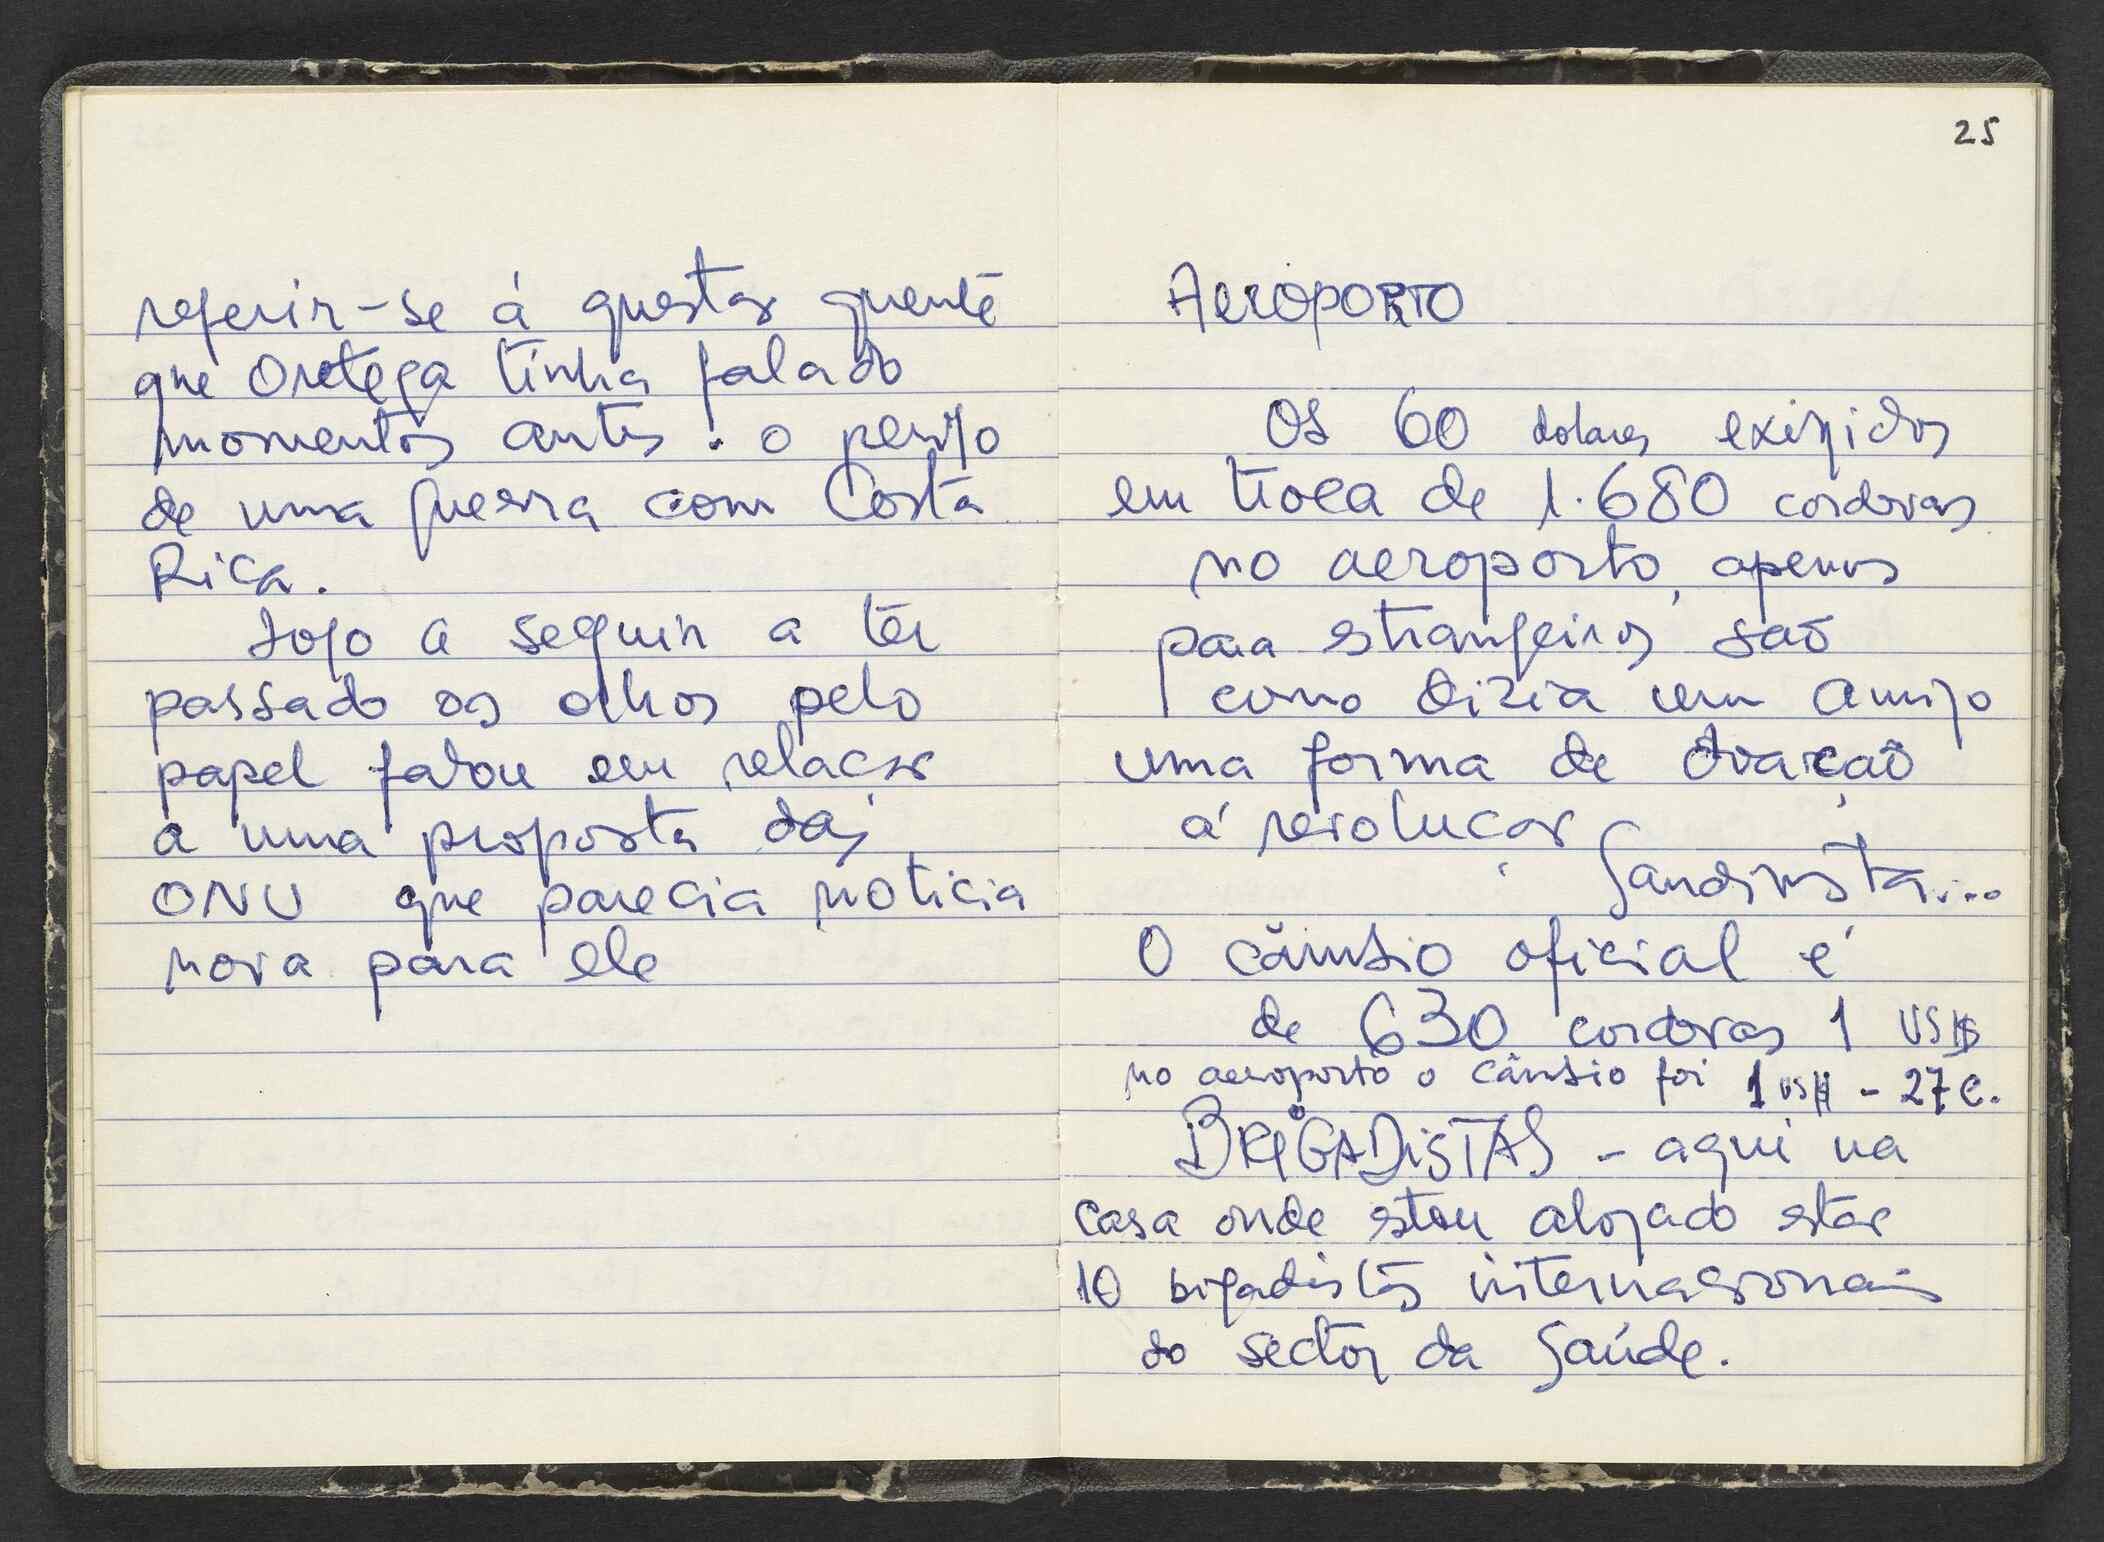 referir-se á questão quente
que Oretega tinha falado
momentos antes: o perigo
de uma guerra com Costa
Rica.
Logo a seguir a ter
passado os olhos pelo
papel falou em relação
a uma proposta da
ONU que parecia noticia
nova para ele
25
AEROPORTO
Os 60 dolares exigidos
em troca de 1.680 cordovas
no aeroporto, apenas
para estrangeiros são
como dizia um amigo
uma forma de doação
á revolução
Sandinista...
O câmbio oficial é
de 630 cordovas 1 US$
no aeroporto o câmbio foi 1 US$ - 27 C.
BRIGADISTAS - aqui na
casa onde estou alojado estão
10 brigadistas internacionais
do sector da Saúde.